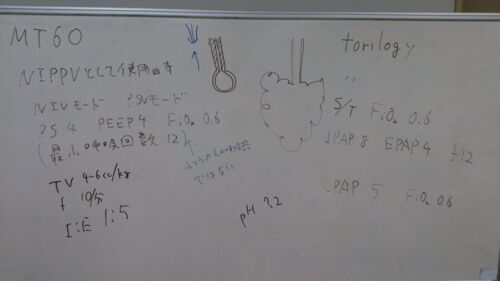 MT60
NIPPVとして使用の時
NIVモード PSVモード
PS 4 PEEP 4 FiO2 0.6
(最小呼吸回数 12)
ではない
TV 4-6cc/kg
f 10/分
I:E 1:5
pH 7.2
torilogy
〃
S/T FiO2 0.6
IPAP 8 EPAP 4 f12
CPAP 5 FiO2 0.6